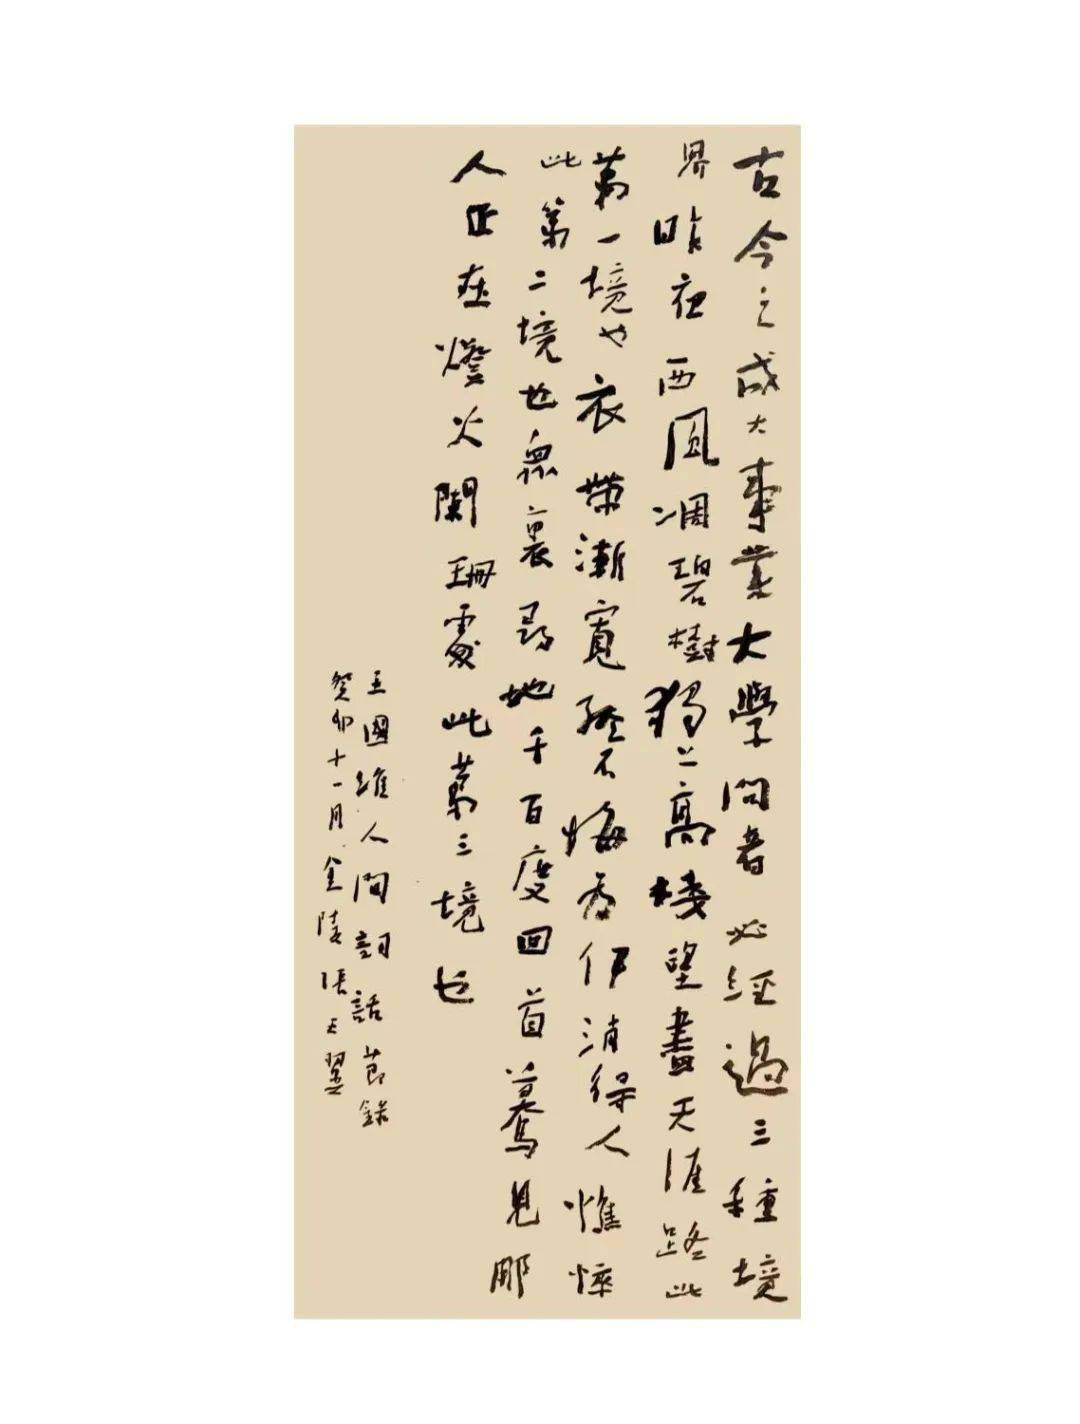 古今之成大事業大學問者必經過三種境
界昨夜西風凋碧樹獨上高樓望盡天涯路此
第一境也衣帶漸寬終不悔為伊消得人憔悴
此第二境也眾裏尋他千百度回首驀見那
人正在燈火闌珊處此第三境也
王國維人間詞話節錄
癸卯十一月金陵張天翼